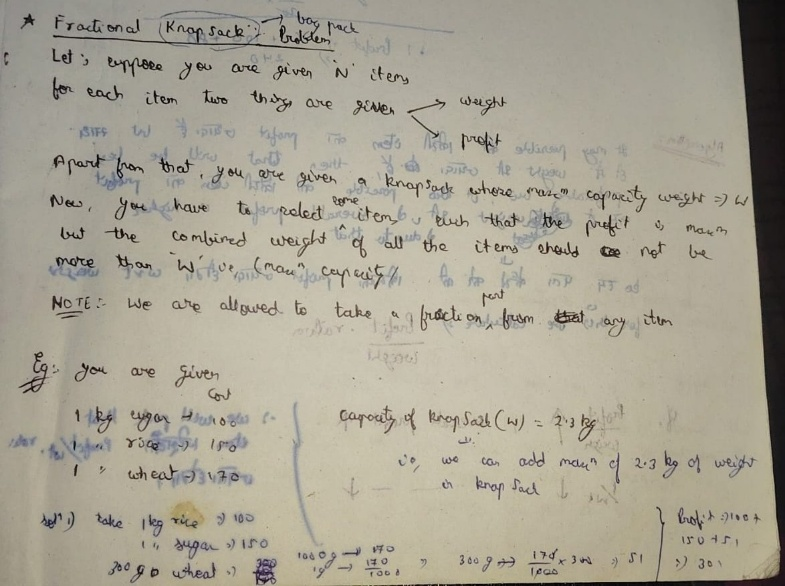 * Fractional Knapsack :- → bag pack
Problem
Let's suppose you are given 'N' items
for each item two things are given → weight
→ profit
Apart from that, you are given a knapsack whose maxm capacity weight => W
Now, you have to select some items such that the profit is maxm
but the combined weight of all the items should not be
more than 'W' ie (maxm capacity)
NOTE:- We are allowed to take a fraction part from any item
Eg:- you are given
Cost
1 kg sugar → 100
1 " rice → 150
1 " wheat → 170
Capacity of knapSack (W) = 2.3 kg
ie, we can add maxm of 2.3 kg of weight
in knapSack
soln i) take 1kg rice => 100
1 " sugar => 150
300 g wheat =>
1000g → 170
1g → 170/1000
" 300 g => 170/1000 x 300 => 51
} Profit => 100 +
150 + 51
=> 301